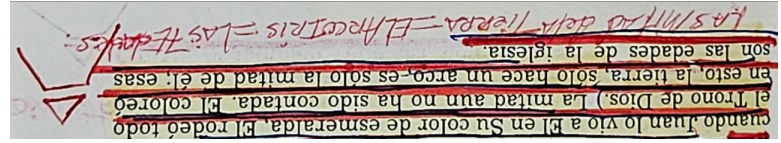 cuando Juan lo vio a El en Su color de esmeralda, El rodeó todo
el Trono de Dios.) La mitad aun no ha sido contada. El coloreó
en esto, la tierra, sólo hace un arco,-es sólo la mitad de él; esas
son las edades de la iglesia.
LAS MITAD de LA TIERRA = EL ARCOIRIS = LAS 7 Edades: